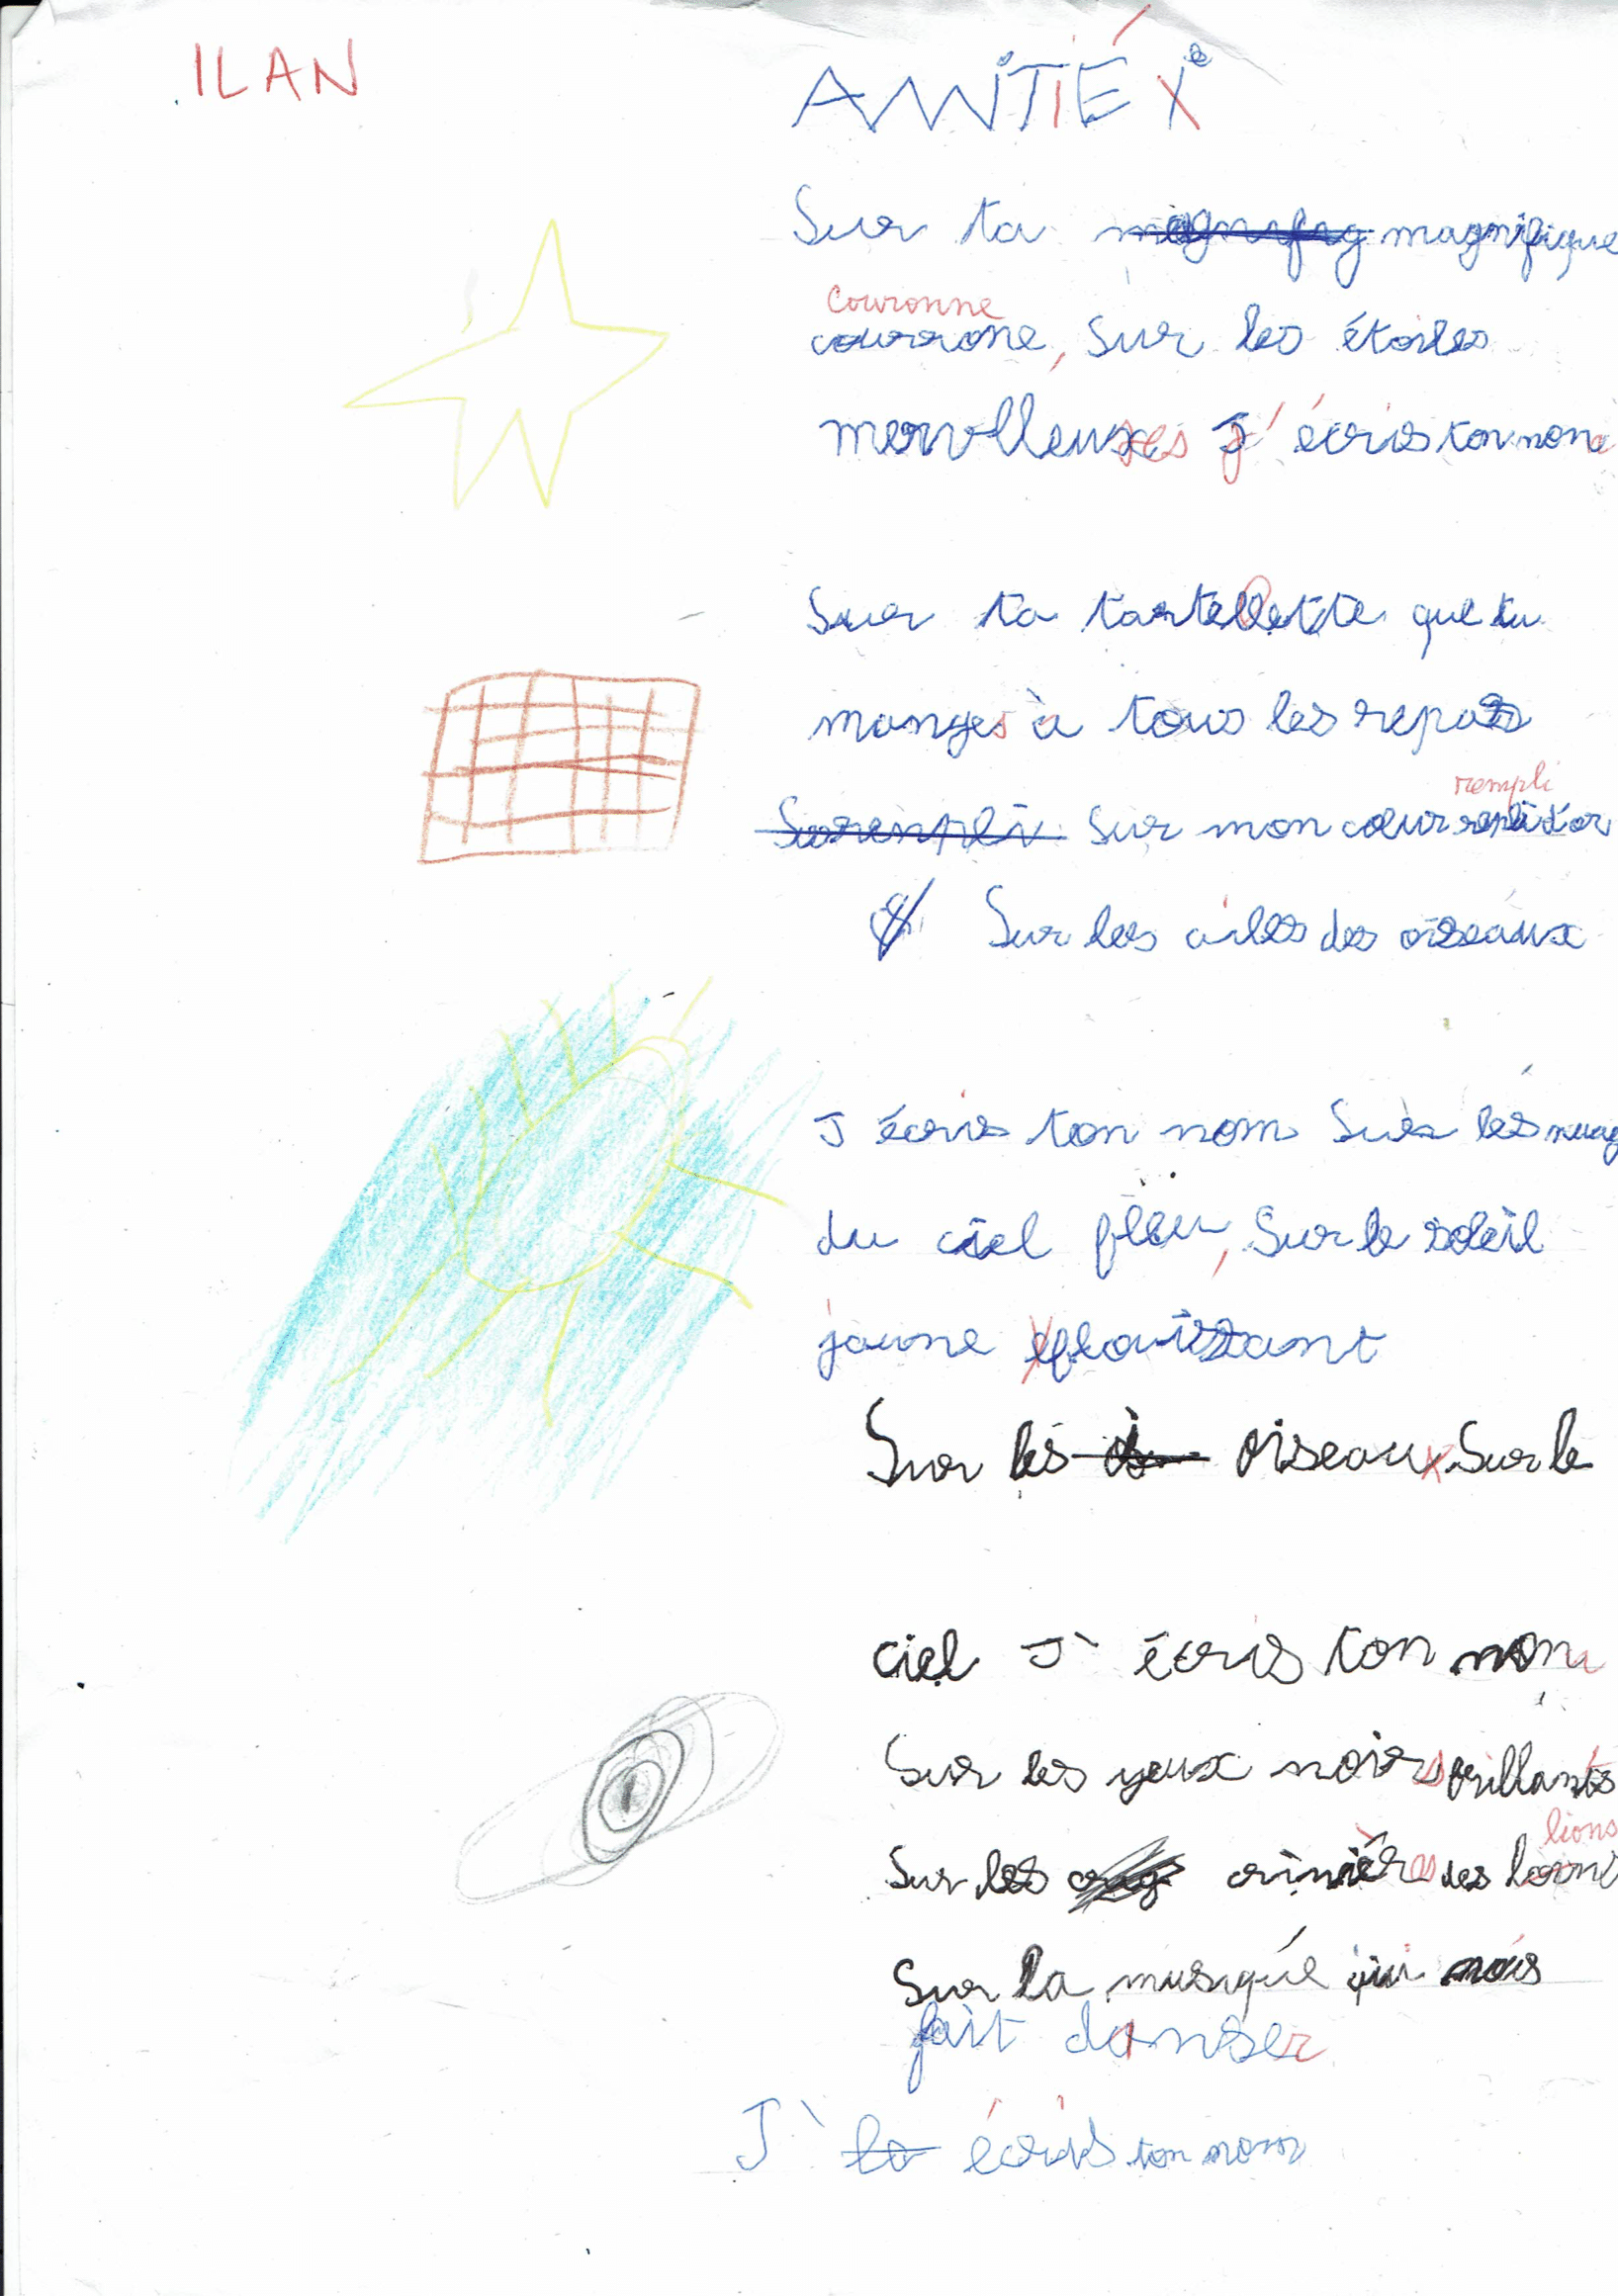 ILAN
AMITIÉ
Sur ta magnifique
couronne
courrone, sur les étoiles
mervlleuses j'écris ton nom
Sur ta tartelette que tu
manges à tous les repas
rempli
Sur mon cœur d'or
Sur les ailes des oiseaux
J écris ton nom Sur les nuag
du ciel bleu, Sur le soleil
jaune
Sur les oiseaux Sur le
ciel J' écris ton nom
Sur les yeux noirs brillants
lions
Sur les crinières des
Sur la musique qui nous
fait danser
J' écris ton nom